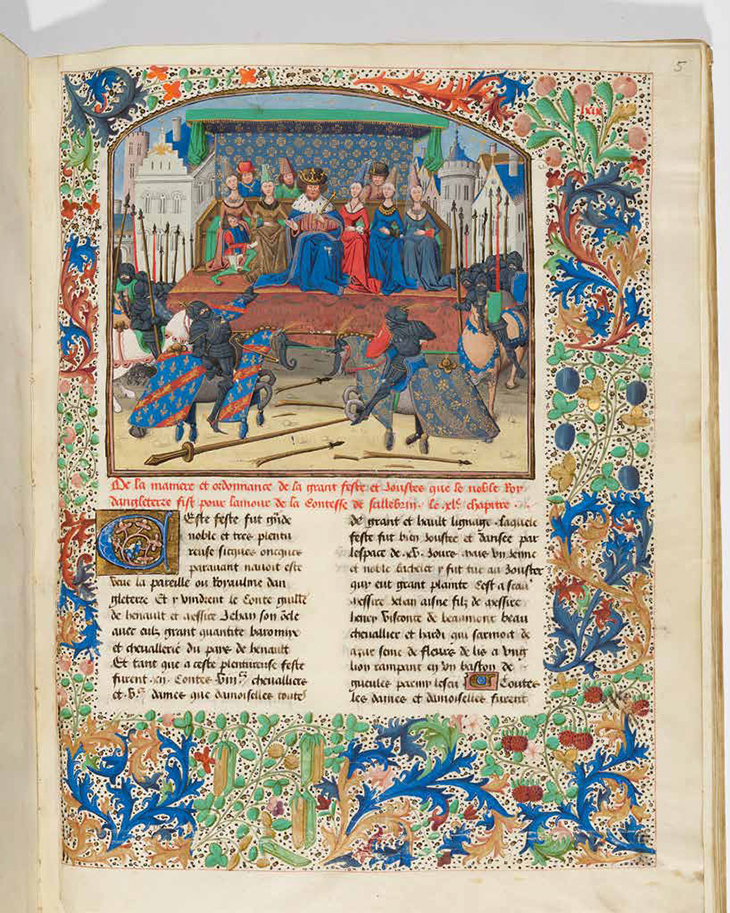 5
De la maniere et ordonnance de la grant feste et Jouste que le noble Roy
dangleterre fist pour lamour de la Contesse de sallebrin. le xlᵉ chapitre.
Ceste feste fut gnde
noble et tres plentu
reuse sicques oncques
paravant navoit este
veue la pareille ou Royaulme dan
gleterre Et y vindrent le Conte guille
de henault et messire Jehan son oncle
avec eulz grant quantite
et chevallerie du pays de henault
Et tant que a ceste plentureuse feste
furent .xii. Contes viiiᶜ. chevalliers
et vᶜ. dames que damoiselles toutes
de grant et hault lignaige. laquele
feste fut bien Joustee et dansee par
lespace de .xv. Jours. mais ung Jeune
et noble bacheler y fut tue au Jouster
quy eut grant plainte Cest a scav
messire Jehan aisne filz de messire
henry visconte de beaumont beau
chevallier et hardi qui sarmoit de
azur seme de fleurs de lis a ung
lion rampant en ung baston de
gueules parmy lescu Toutes
les dames et damoiselles furent